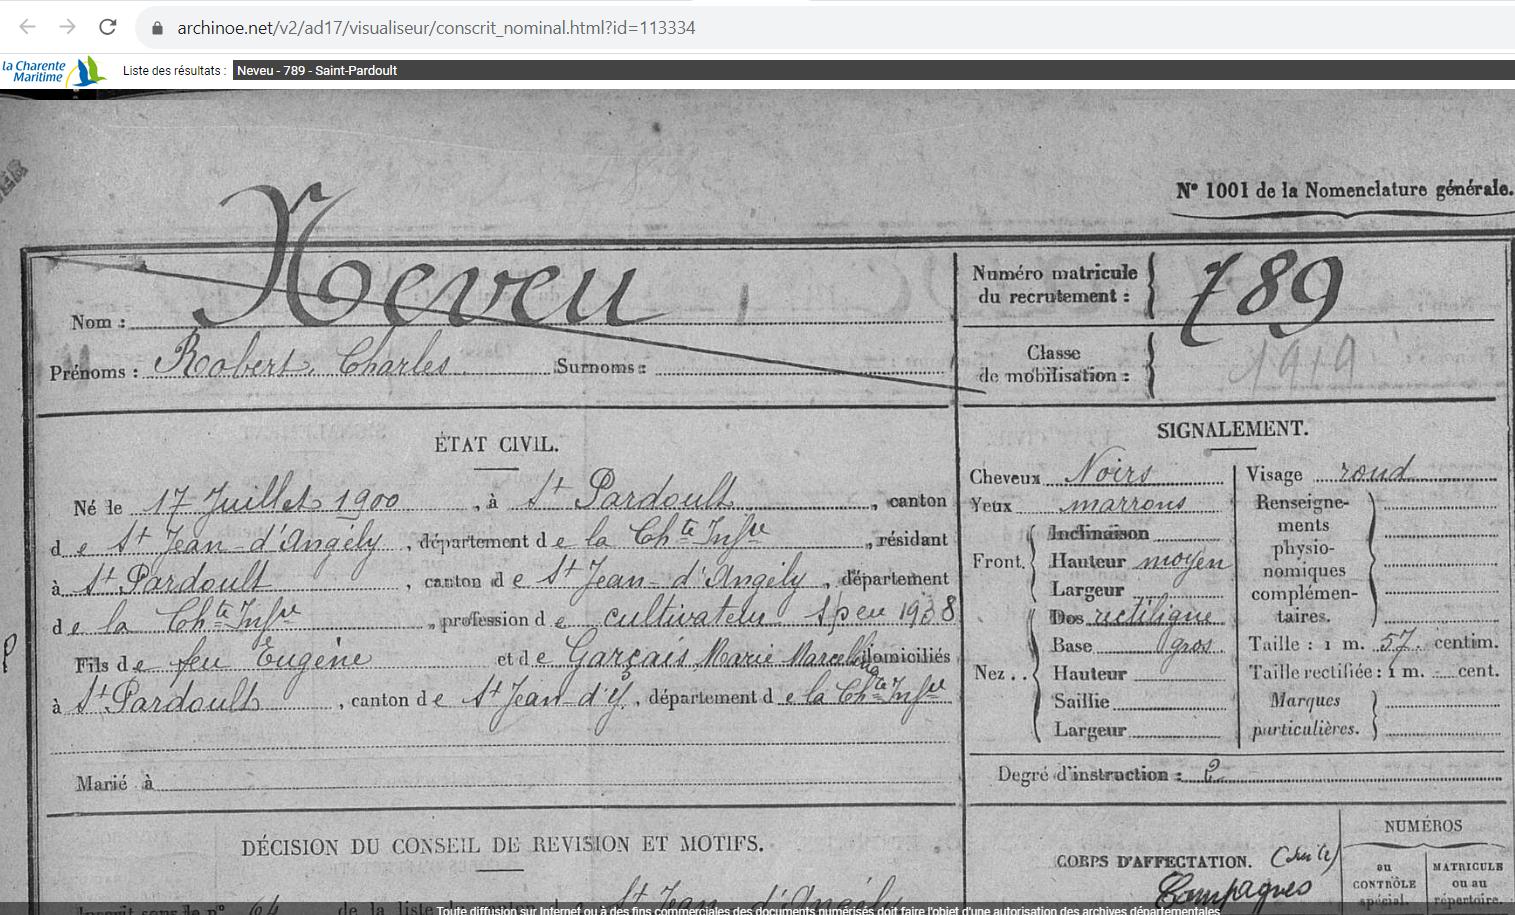 archinoe.net/v2/ad17/visualiseur/conscrit_nominal.html?id=113334
la Charente
Maritime
Liste des résultats : Neveu - 789 - Saint-Pardoult
N° 1001 de la Nomenclature générale.
Nom : Neveu
Prénoms : Robert, Charles. Surnoms :
Numéro matricule
du recrutement : 789
Classe
de mobilisation : 1919
ÉTAT CIVIL.
Né le 17 Juillet 1900, à St Pardoult, canton
de St Jean-d'Angély, département de la Chte Infre, résidant
à St Pardoult, canton de St Jean-d'Angély, département
de la Chte Infre, profession de cultivateur 1938
Fils de feu Eugène et de Garçais Marie Marcelina domiciliés
à St Pardoult, canton de St Jean-d'Y, département de la Chte Infre
Marié à
SIGNALEMENT.
Cheveux Noirs
Yeux marrons
Front. Inclinaison
Hauteur moyen
Largeur
Nez .. Dos rectiligne
Base gros
Hauteur
Saillie
Largeur
Visage rond
Renseigne-
ments
physio-
nomiques
complémen-
taires.
Taille : 1 m. 57 centim.
Taille rectifiée : 1 m. cent.
Marques
particulières.
Degré d'instruction : 2
DÉCISION DU CONSEIL DE REVISION ET MOTIFS.
CORPS D'AFFECTATION.
Compagnes
NUMÉROS
au
CONTRÔLE
spécial.
MATRICULE
ou au
répertoire.
Inscrit sous le n° 64 de la liste du canton de St Jean d'Angély
Toute diffusion sur Internet ou à des fins commerciales des documents numérisés doit faire l'objet d'une autorisation des archives départementales